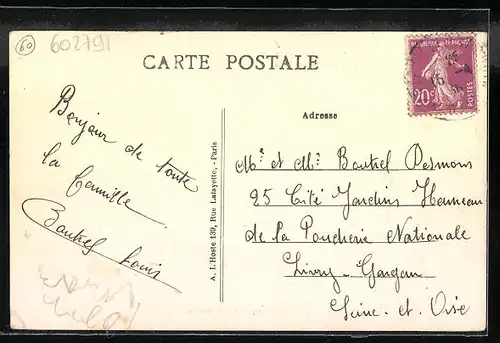 60
602791
CARTE POSTALE
RÉPUBLIQUE FRANÇAISE
20c
POSTES
Adresse
Bonjour de toute
la famille
Bautrel Louis
A. L'Hoste 139, Rue Lafayette, - Paris
Mr et Me Bautrel Desmons
25 Cité Jardins Hameau
de la Poudrerie Nationale
Livry-Gargan
Seine-et-Oise